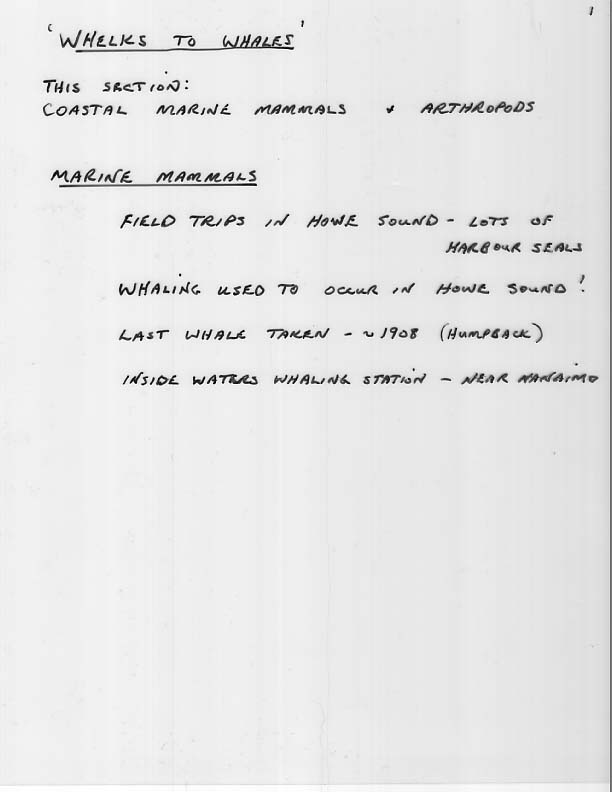 1
'WHELKS TO WHALES'
THIS SECTION:
COASTAL MARINE MAMMALS + ARTHROPODS
MARINE MAMMALS
FIELD TRIPS IN HOWE SOUND - LOTS OF
HARBOUR SEALS
WHALING USED TO OCCUR IN HOWE SOUND!
LAST WHALE TAKEN - ~ 1908 (HUMPBACK)
INSIDE WATERS WHALING STATION - NEAR NANAIMO